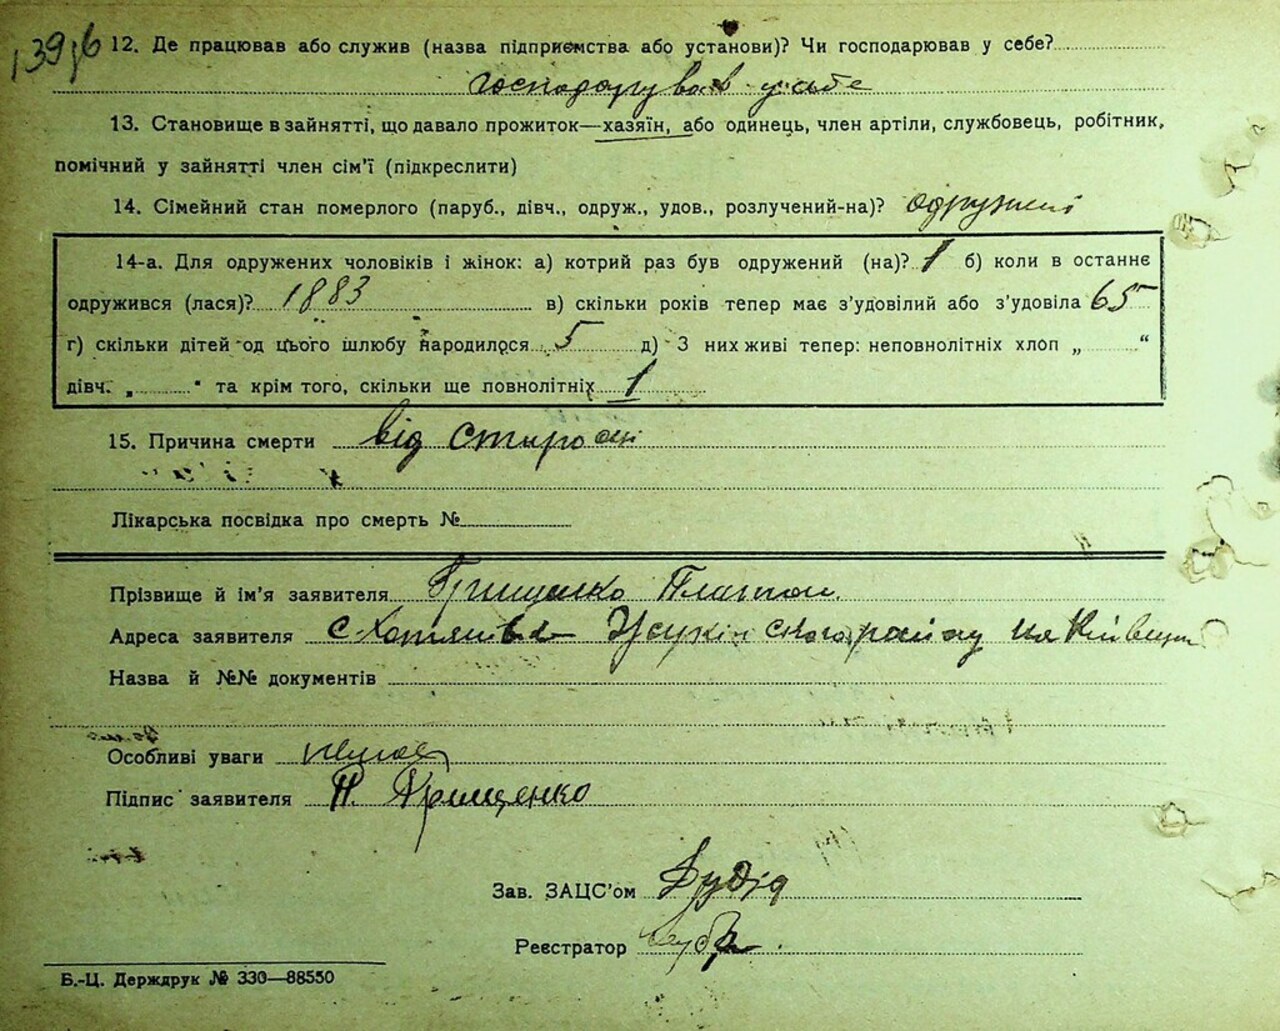 139
12. Де працював або служив (назва підприємства або установи)? Чи господарював у себе?
господарував у себе
13. Становище в зайнятті, що давало прожиток—хазяїн, або одинець, член артіли, службовець, робітник,
помічний у зайнятті член сім'ї (підкреслити)
14. Сімейний стан померлого (паруб., дівч., одруж., удов., розлучений-на)?
14-а. Для одружених чоловіків і жінок: а) котрий раз був одружений (на)? 1 б) коли в останнє
одружився (лася)? 1883 в) скільки років тепер має з'удовілий або з'удовіла 65
г) скільки дітей од цього шлюбу народилося 5 д) З них живі тепер: неповнолітніх хлоп „ “
дівч. „ “ та крім того, скільки ще повнолітніх 1
15. Причина смерти від старости
Лікарська посвідка про смерть №
Прізвище й ім'я заявителя Грищенко Платон.
Адреса заявителя с. Хотянівка району на Київщині
Назва й №№ документів
Особливі уваги немає
Підпис заявителя П. Грищенко
Зав. ЗАЦС'ом
Реєстратор
Б.-Ц. Держдрук № 330—88550